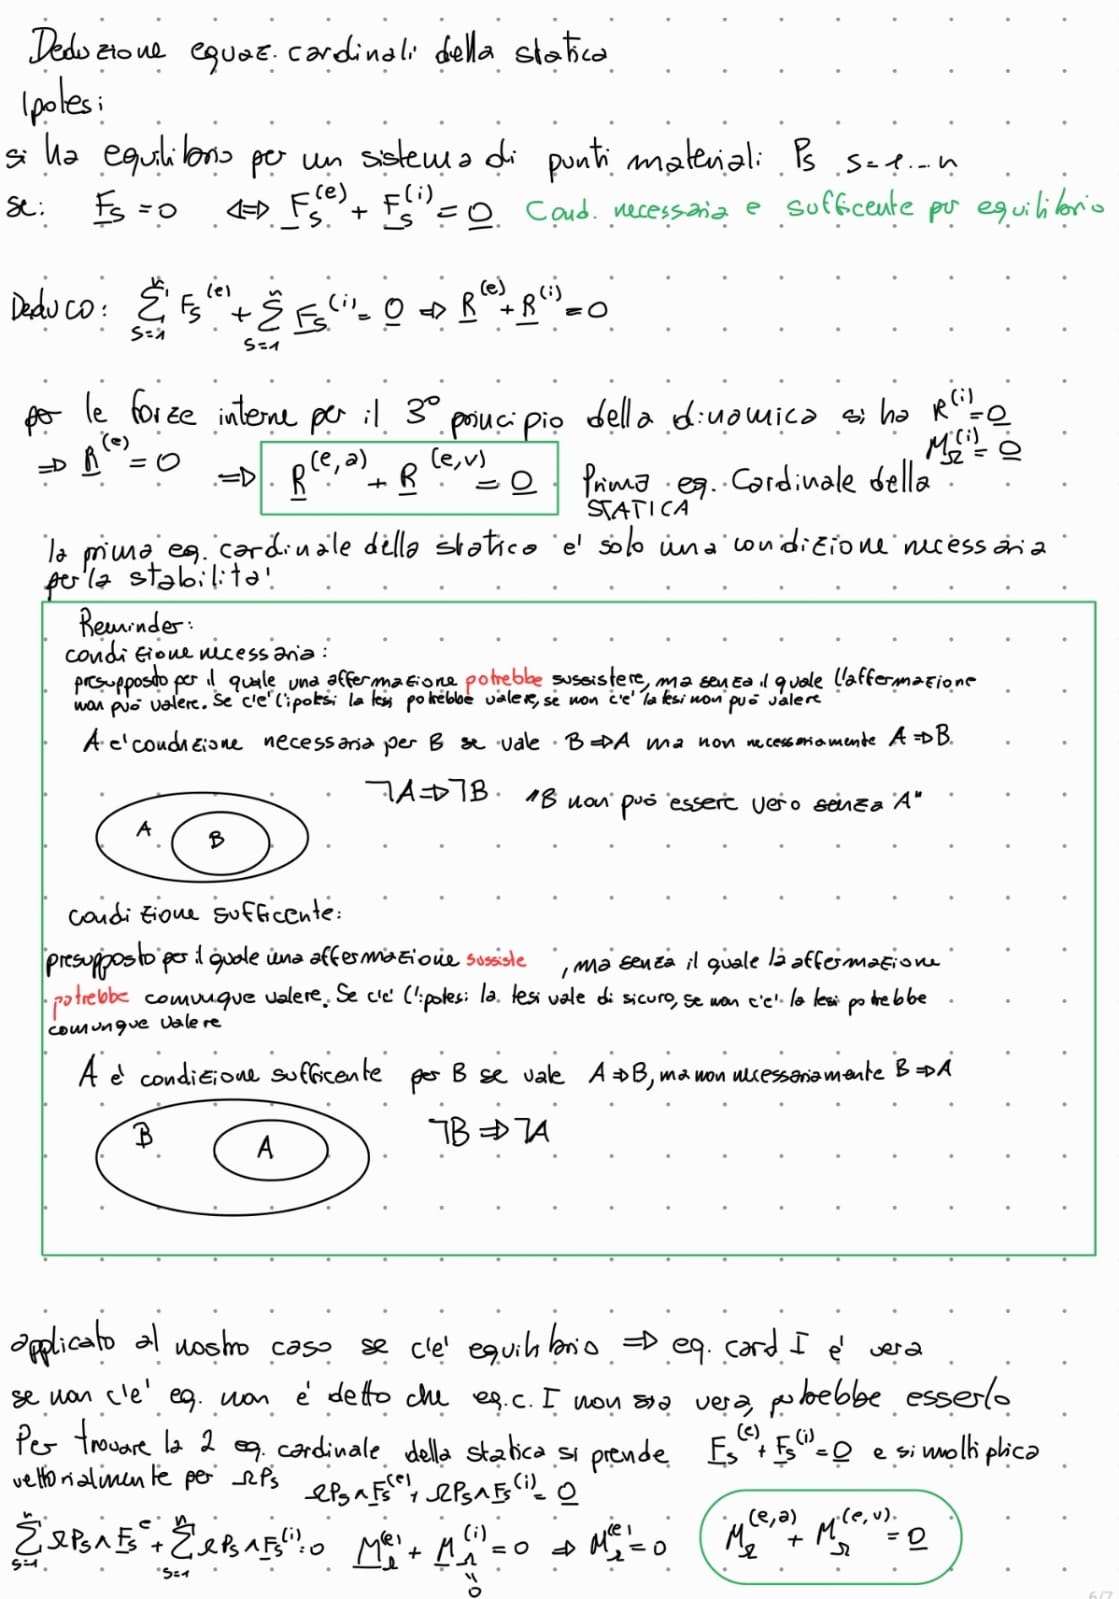 Deduzione equaz. cardinali della statica
Ipotesi
si ha equilibrio per un sistema di punti materiali Ps s=1...n
se: F̲s = 0 ⇔ F̲s^(e) + F̲s^(i) = 0̲ Cond. necessaria e sufficente per equilibrio
Deduco: ∑_{s=1}^{n} Fs^(e) + ∑_{s=1}^{n} F̲s^(i) = 0̲ ⇒ R̲^(e) + R̲^(i) = 0
per le forze interne per il 3° principio della dinamica si ha R^(i) = 0̲
⇒ R̲^(e) = 0 M_Ω^(i) = 0̲
⇒ R̲^(e,a) + R̲^(e,v) = 0̲ Prima eq. Cardinale della
STATICA
la prima eq. cardinale della statica e' solo una condizione necessaria
per la stabilita'
Reminder:
condizione necessaria:
presupposto per il quale una affermazione potrebbe sussistere, ma senza il quale l'affermazione
non può valere. Se c'e' l'ipotesi la tesi potrebbe valere, se non c'e' la tesi non può valere
A e' condizione necessaria per B se vale B ⇒ A ma non necessariamente A ⇒ B.
¬A ⇒ ¬B "B non può essere vero senza A"
A B
condizione sufficente:
presupposto per il quale una affermazione sussiste , ma senza il quale la affermazione
potrebbe comunque valere. Se c'e' l'ipotesi la tesi vale di sicuro, se non c'e' la tesi potrebbe
comunque valere
A è condizione sufficente per B se vale A ⇒ B, ma non necessariamente B ⇒ A
B A ¬B ⇒ ¬A
applicato al nostro caso se c'e' equilibrio ⇒ eq. card I e' vera
se non c'e' eq. non è detto che eq.c. I non sia vera, potrebbe esserlo
Per trovare la 2 eq. cardinale della statica si prende F̲s^(e) + F̲s^(i) = 0̲ e si moltiplica
vettorialmente per ΩPs ΩPs ∧ F̲s^(e) + ΩPs ∧ F̲s^(i) = 0̲
∑_{s=1}^{n} ΩPs ∧ F̲s^e + ∑_{s=1}^{n} ΩPs ∧ F̲s^(i) = 0 M̲_Ω^(e) + M̲_Ω^(i) = 0 ⇒ M_Ω^(e) = 0 M_Ω^(e,a) + M_Ω^(e,v) = 0̲
"
0
6/7